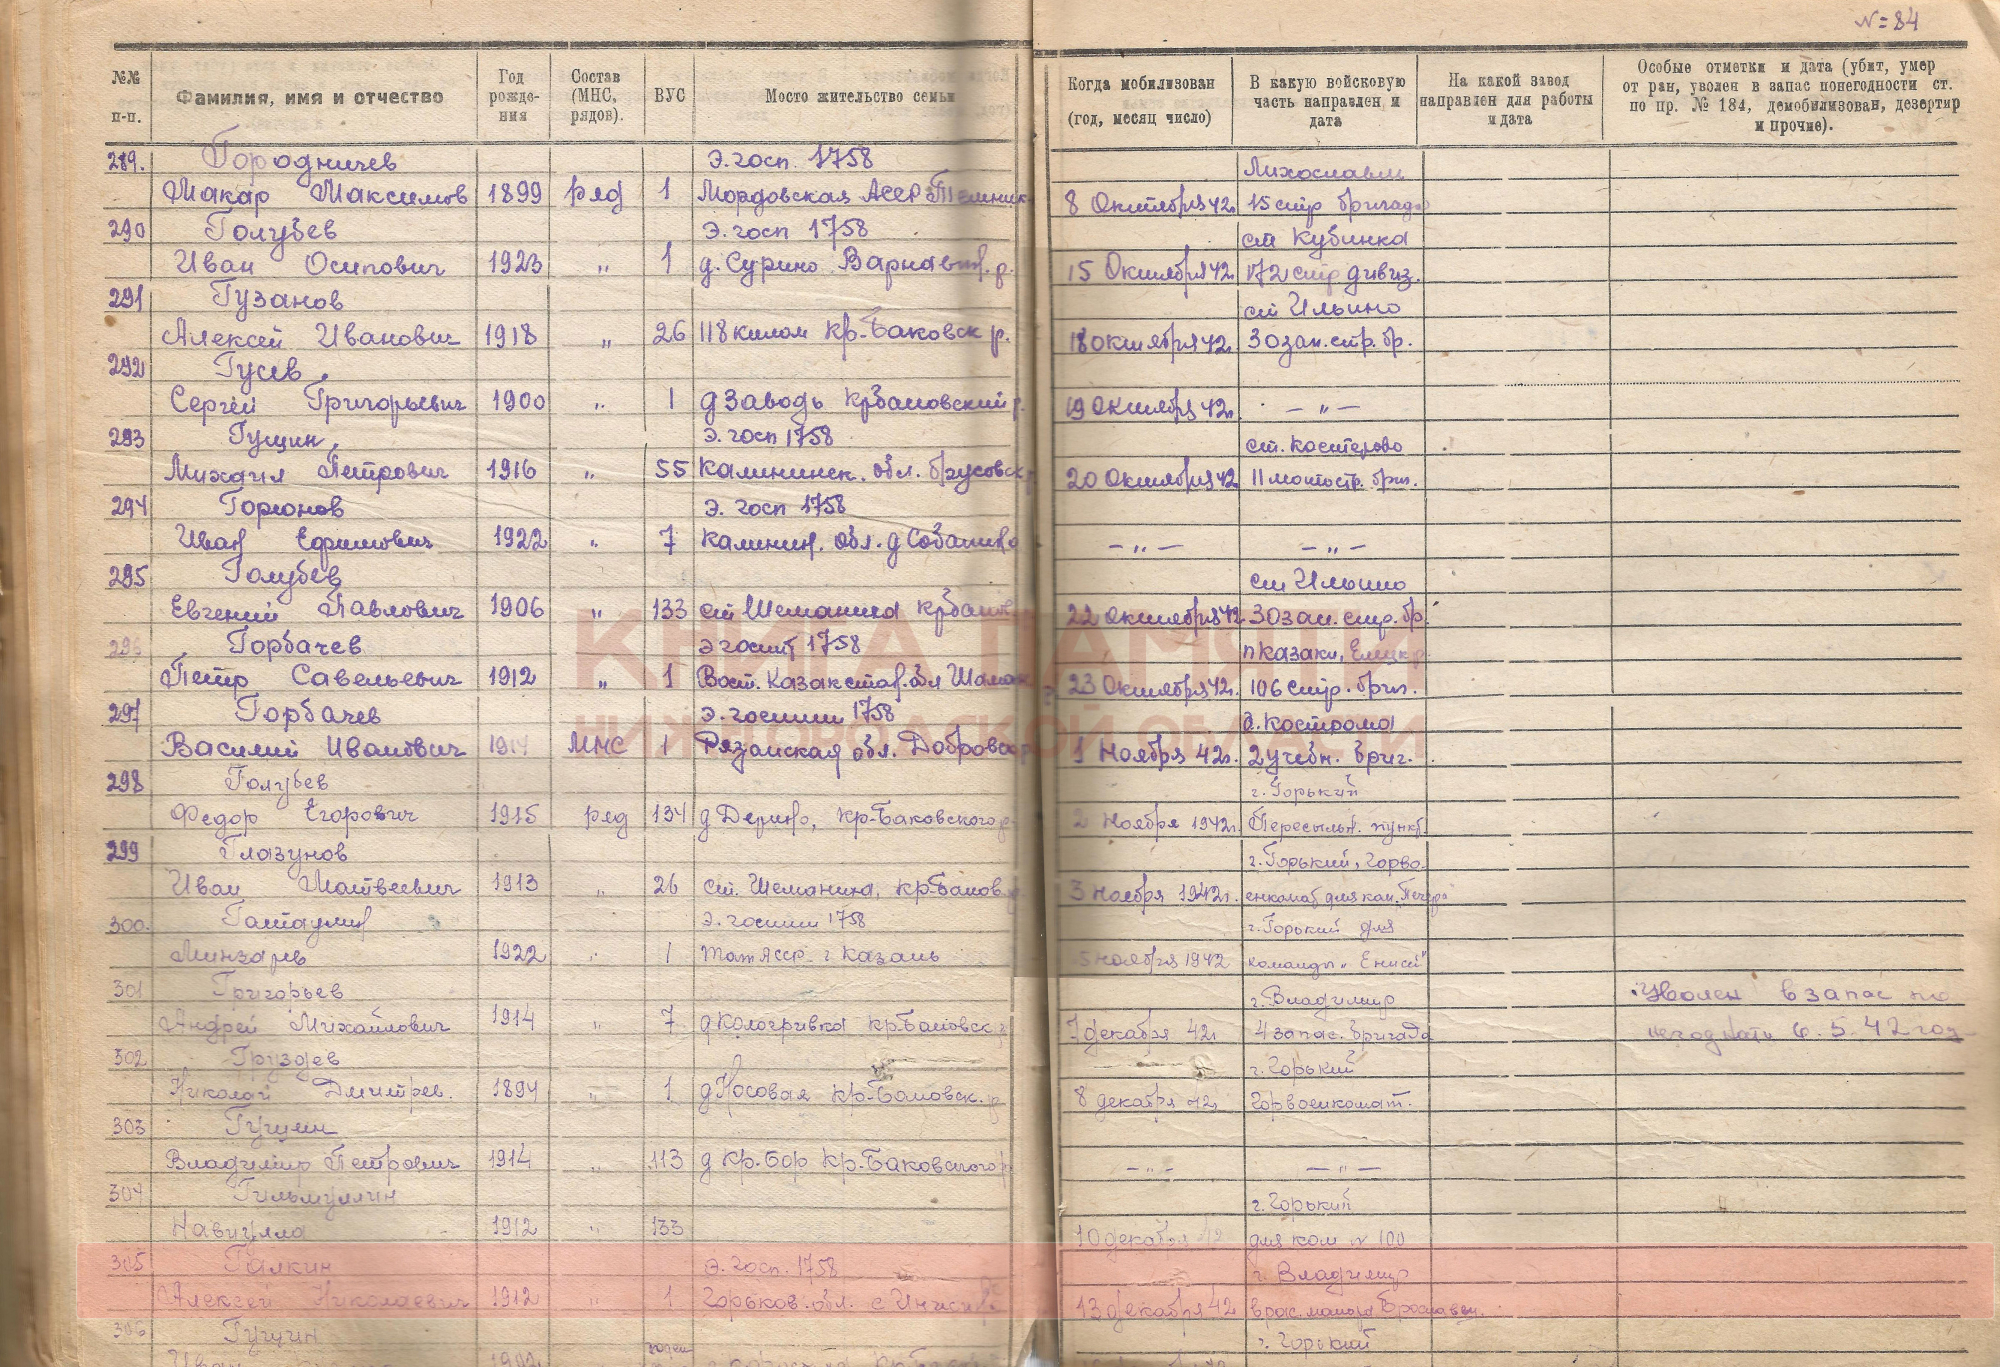 N=84
№№ п-п.
Фамилия, имя и отчество
Год рожде-ния
Состав (МНС, рядов).
ВУС
Мосто жительство семьи
Когда мобилизован (год, месяц число)
В какую войсковую часть направлен и дата
На какой завод направлен для работы и дата
Особые отметки и дата (убит, умер от ран, уволен в запас понегодности ст. по пр. № 184, демобилизован, дезертир и прочие).
289. Городничев Э. госп. 1758 Лихославль
Макар Максимов 1899 ряд 1 Мордовская АССР 8 Октября 42г. 15 стр бригада
290 Голубев Э. госп 1758 ст Кубинка
Иван Осипович 1923 „ 1 д. Сурино Варнавин. р. 15 Октября 42 172 стр дивиз.
291 Гузанов ст Ильино
Алексей Иванович 1918 „ 26 118 килом Кр-Баковск р. 18 октября 42. 30 зап. стр. бр.
292 Гусев
Сергей Григорьевич 1900 „ 1 д Заводь КрБаковский р. 19 Октября 42г. — „ —
293 Гущин Э. госп 1758 ст. Костерево
Михаил Петрович 1916 „ 55 Калининск. обл. 20 Октября 42 11 мотостр. бриг.
294 Горюнов Э. госп 1758
Иван Ефимович 1922 „ 7 Калинин. обл. д — „ — — „ —
295 Голубев ст Ильино
Евгений Павлович 1906 „ 133 ст Шеманиха КрБаков 22 Октября 42 30 зап. стр. бр.
296 Горбачев э госпит 1758 п Казаки, Елецк р.
Петр Савельевич 1912 „ 1 Вост. Казакстан. обл 23 Октября 42г. 106 стр. бриг.
297 Горбачев э. госпит 1758 г. Кострома
Василий Иванович 1914 МНС 1 Рязанская обл. 1 Ноября 42г. 2 учебн. бриг.
298 Голубев г. Горький
Федор Егорович 1915 ряд 134 д Дерино, Кр-Баковского р. 2 Ноября 1942г. Пересыльн. пункт
299 Глазунов г. Горький, Горво-
Иван Матвеевич 1913 „ 26 ст. Шеманиха, Кр-Баков. р. 3 Ноября 1942г. енкомат для ком.
300. Э. госпит 1758 г. Горький для
1922 „ 1 Тат АССР г Казань 5 Ноября 1942 команды „Енисей"
301 Григорьев г. Владимир Уволен в запас по
Андрей Михайлович 1914 „ 7 КрБаковск. р 7 декабря 42г. 4 запас. бригада 6. 5. 42 год
302 Груздев г. Горький
Николай Дмитрев. 1894 „ 1 д Носовая Кр-Баковск. р 8 декабря 42г. Горвоенкомат.
303 Гущин
Владимир Петрович 1914 „ 113 д Кр. Бор Кр. Баковского р — „ — — „ —
304 Гильмуллин г. Горький
1912 „ 133 10 декабря 42 для ком N 100
305 Галкин Э. госп. 1758 г. Владимир
Алексей Николаевич 1912 „ 1 Горьков. обл. с 13 декабря 42
306 Гущин г. Горький
Иван
КНИГА ПАМЯТИ
НИЖЕГОРОДСКОЙ ОБЛАСТИ